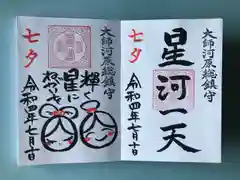 大師河原総鎮守
星河一天
七夕
令和四年七月七日
大師河原総鎮守
輝く
星に
ねがいを
七夕
令和四年七月七日